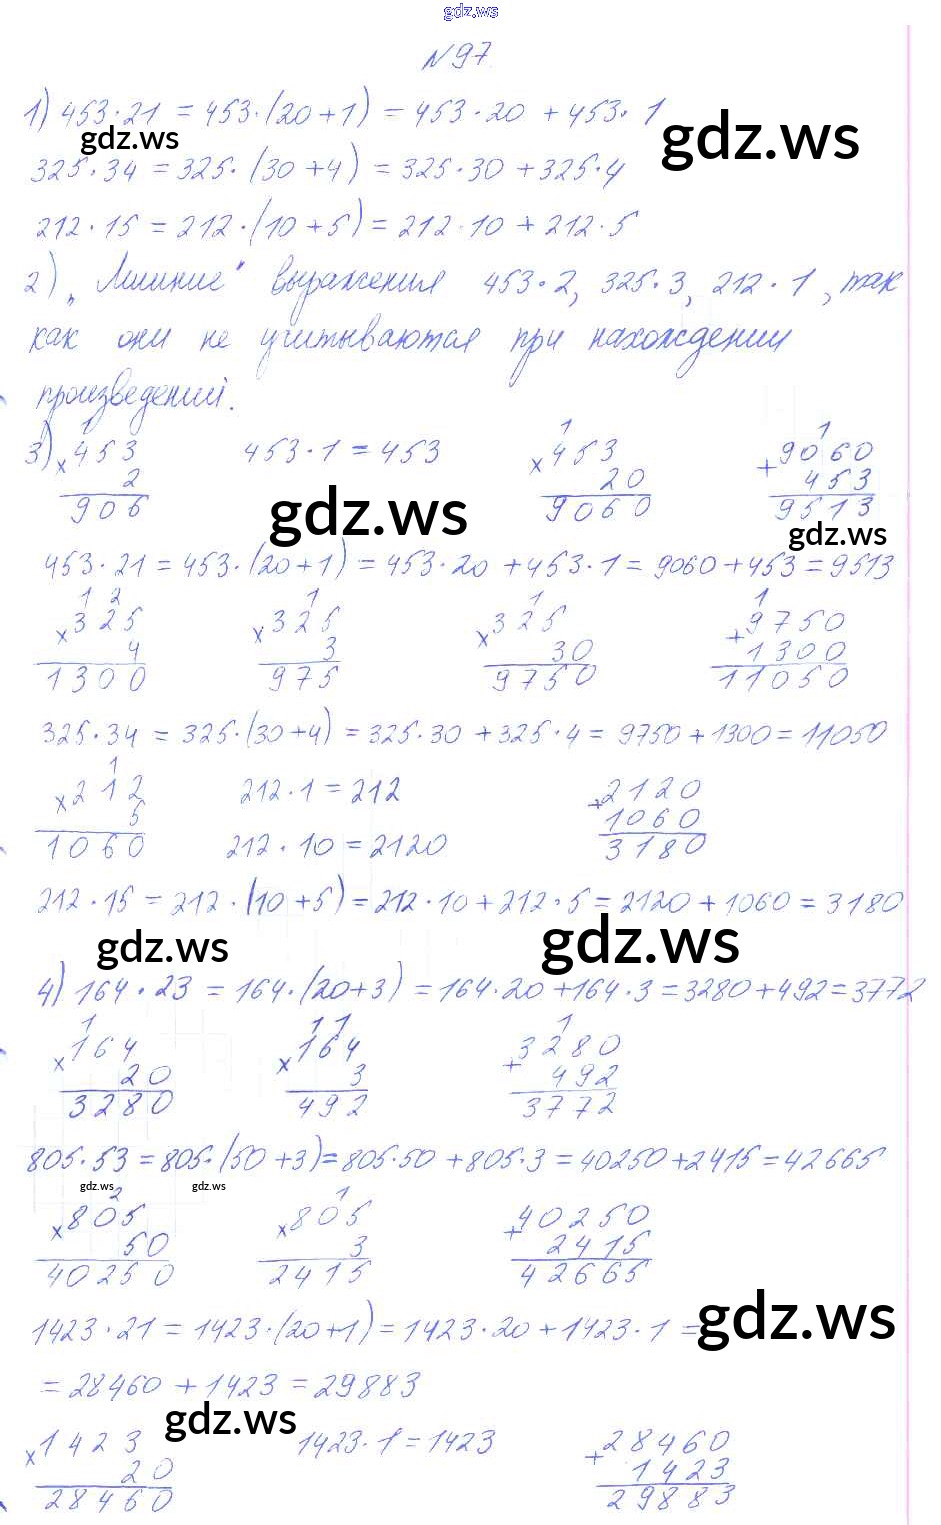 gdz.ws
№97
1) 453·21 = 453·(20+1) = 453·20 + 453·1
gdz.ws gdz.ws
325·34 = 325·(30+4) = 325·30 + 325·4
212·15 = 212·(10+5) = 212·10 + 212·5
2) „Лишние" выражения 453·2, 325·3, 212·1, так
как они не учитываются при нахождении
произведений.
1 1 1
3) × 453 453·1 = 453 × 453 + 9060
2 20 453
906 9060 9513
gdz.ws gdz.ws
453·21 = 453·(20+1) = 453·20 + 453·1 = 9060 + 453 = 9513
1 2 1 1 1
× 325 × 325 × 325 + 9750
4 3 30 1300
1300 975 9750 11050
325·34 = 325·(30+4) = 325·30 + 325·4 = 9750 + 1300 = 11050
1
× 212 212·1 = 212 + 2120
5 1060
1060 212·10 = 2120 3180
212·15 = 212·(10+5) = 212·10 + 212·5 = 2120 + 1060 = 3180
gdz.ws gdz.ws
4) 164·23 = 164·(20+3) = 164·20 + 164·3 = 3280 + 492 = 3772
1 11 1
× 164 × 164 + 3280
20 3 492
3280 492 3772
805·53 = 805·(50+3) = 805·50 + 805·3 = 40250 + 2415 = 42665
gdz.ws gdz.ws
2 1
× 805 × 805 + 40250
50 3 2415
40250 2415 42665
1423·21 = 1423·(20+1) = 1423·20 + 1423·1 =
gdz.ws
= 28460 + 1423 = 29883
gdz.ws
× 1423 1423·1 = 1423 + 28460
20 1423
28460 29883